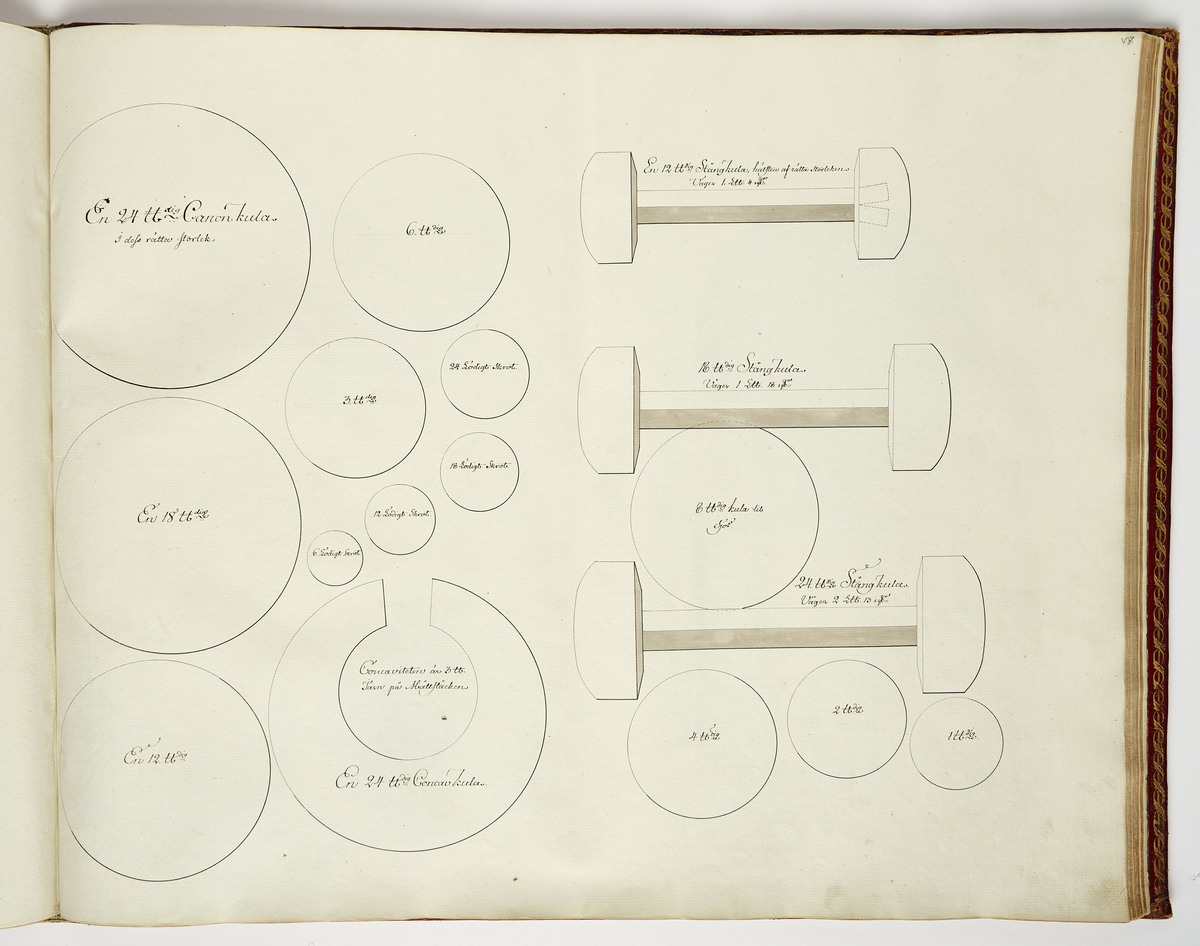 En 24 ttdig Canon kula
I dess rätta storlek
6. ttdig
3. ttdig
24 Lödigt Skrot.
18 Lödigt Skrot.
12 Lödigt Skrot.
6 Lödigt Skrot
En 18 ttdig
En 12 ttdig
Concaviteten är 3 tt.
Järn på Måttstäcken
En 24 ttdig Concav kula.
En 12 ttdig Stångkula, hälften af rätta storleken
Väger 1. Ltt. 4
18 ttdig Stångkula
Väger 1 Ltt. 18
8 ttdig kula til
24. ttdig Stångkula
Väger 2 Ltt. 13
4 ttdig
2 ttdig
1 ttdig